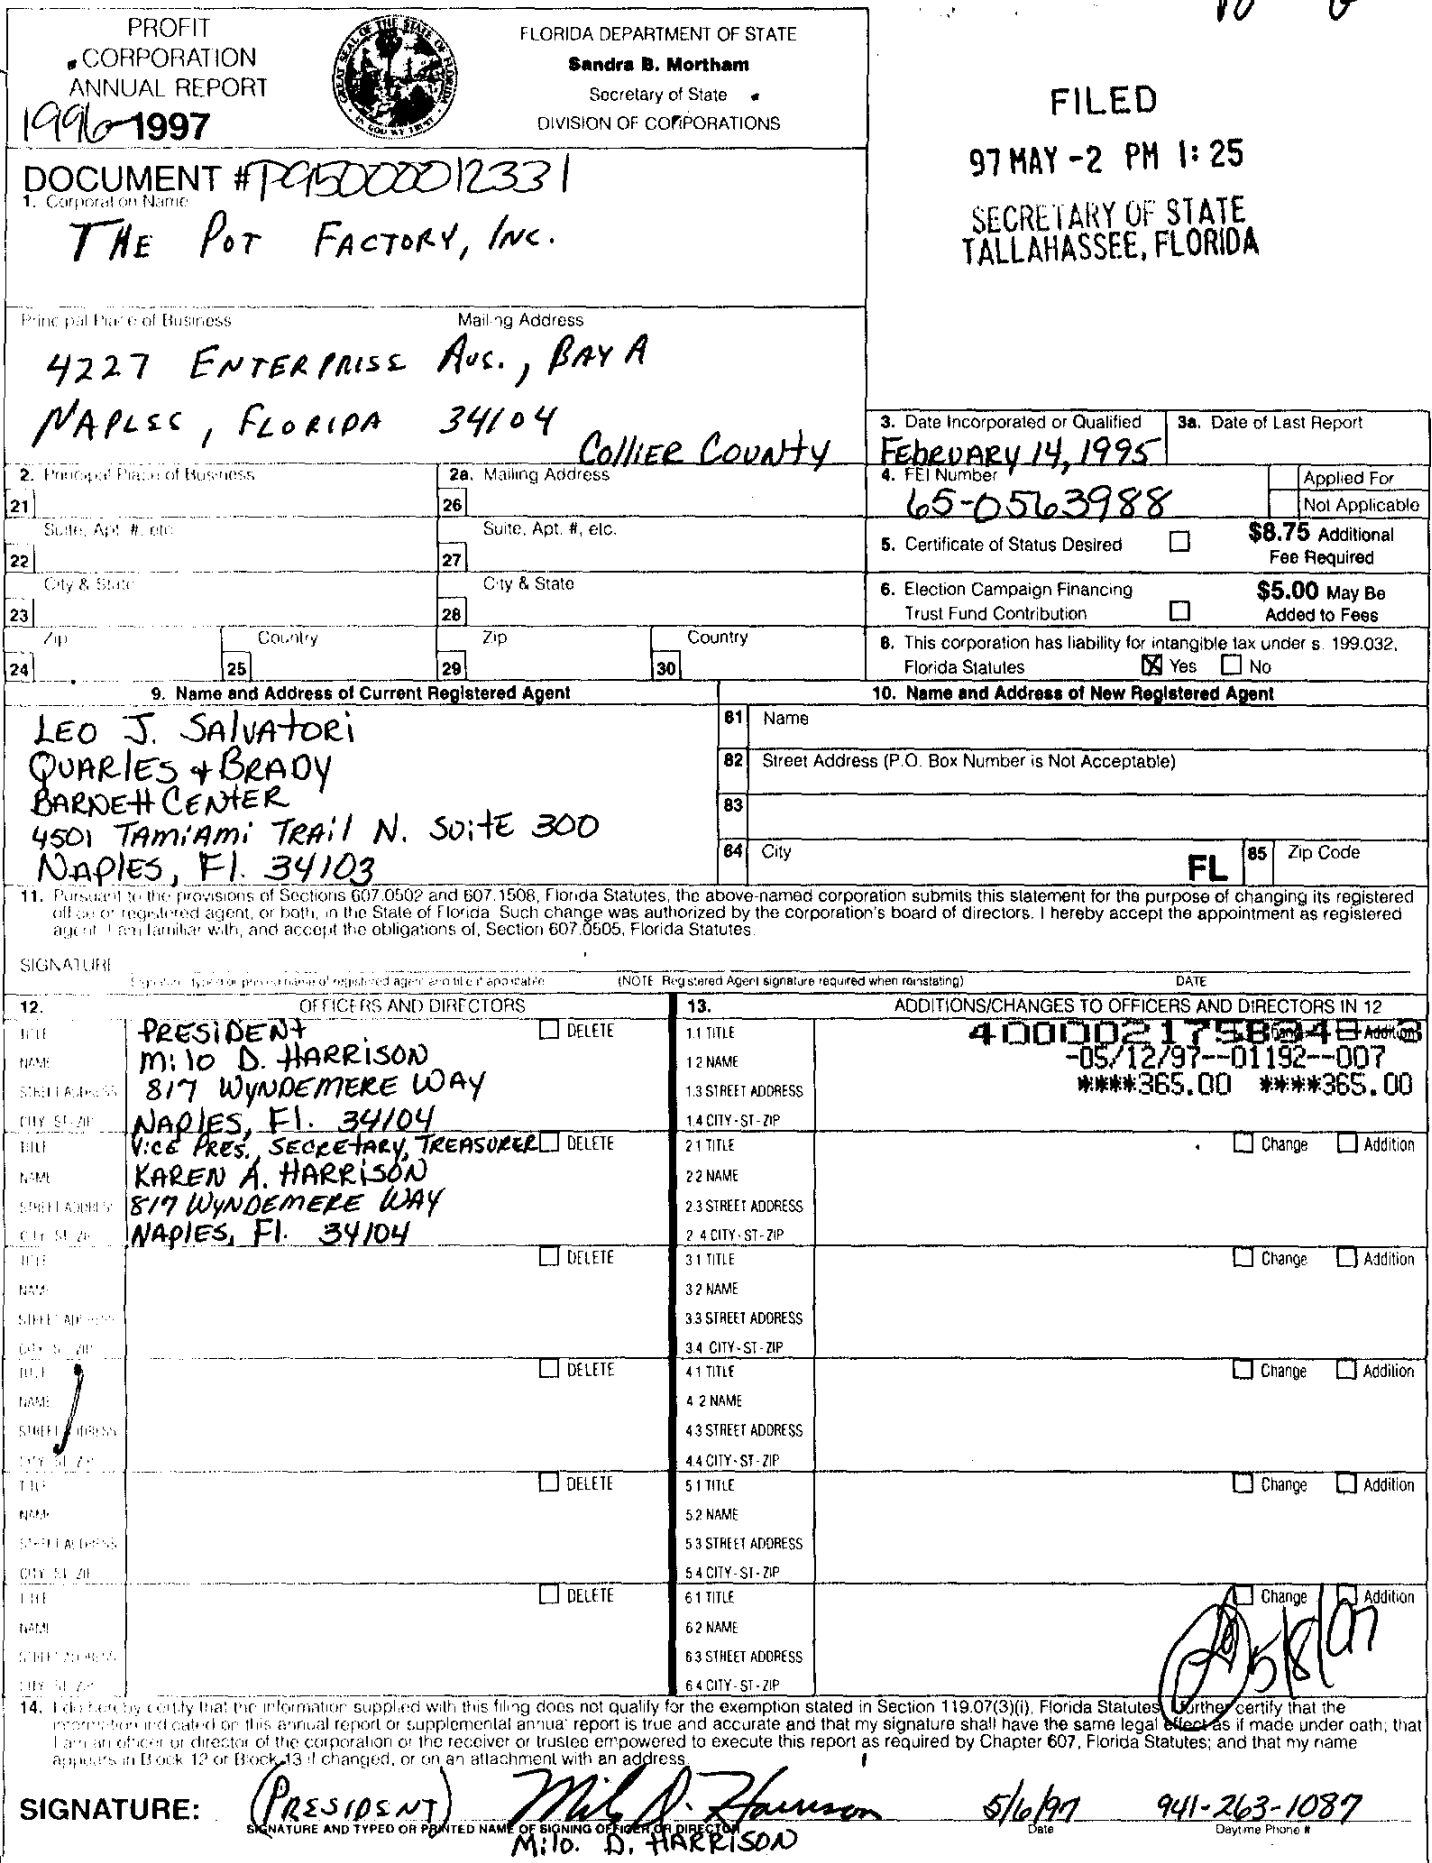 PROFIT
CORPORATION
ANNUAL REPORT
1996-1997
FLORIDA DEPARTMENT OF STATE
Sandra B. Mortham
Secretary of State
DIVISION OF CORPORATIONS
FILED
97 MAY -2 PM 1:25
SECRETARY OF STATE
TALLAHASSEE, FLORIDA
DOCUMENT # P95000012331
1. Corporation Name
THE POT FACTORY, INC.
Principal Place of Business Mailing Address
4227 ENTERPRISE AVE., BAY A
NAPLES, FLORIDA 34104
COLLIER COUNTY
3. Date Incorporated or Qualified
FEBRUARY 14, 1995
3a. Date of Last Report
2. Principal Place of Business
2a. Mailing Address
21
26
Suite, Apt. #, etc.
Suite, Apt. #, etc.
22
27
City & State
City & State
23
28
Zip Country Zip Country
24 25 29 30
4. FEI Number
65-0563988
Applied For
Not Applicable
5. Certificate of Status Desired
$8.75 Additional
Fee Required
6. Election Campaign Financing
Trust Fund Contribution
$5.00 May Be
Added to Fees
8. This corporation has liability for intangible tax under s. 199.032,
Florida Statutes Yes No
9. Name and Address of Current Registered Agent
LEO J. SALVATORI
QUARLES + BRADY
BARNETT CENTER
4501 TAMIAMI TRAIL N. SUITE 300
NAPLES, Fl. 34103
10. Name and Address of New Registered Agent
81 Name
82 Street Address (P.O. Box Number is Not Acceptable)
83
84 City FL 85 Zip Code
11. Pursuant to the provisions of Sections 607.0502 and 607.1508, Florida Statutes, the above-named corporation submits this statement for the purpose of changing its registered
office or registered agent, or both, in the State of Florida. Such change was authorized by the corporation's board of directors. I hereby accept the appointment as registered
agent. I am familiar with, and accept the obligations of, Section 607.0505, Florida Statutes.
SIGNATURE
Signature, typed or printed name of registered agent and title if applicable (NOTE Registered Agent signature required when reinstating) DATE
12. OFFICERS AND DIRECTORS
13. ADDITIONS/CHANGES TO OFFICERS AND DIRECTORS IN 12
TITLE PRESIDENT DELETE
NAME MILO D. HARRISON
STREET ADDRESS 817 WYNDEMERE WAY
CITY-ST-ZIP NAPLES, Fl. 34104
1.1 TITLE Addition
1.2 NAME -05/12/97--01192--007
1.3 STREET ADDRESS ****365.00 ****365.00
1.4 CITY-ST-ZIP
TITLE VICE PRES., SECRETARY, TREASURER DELETE
NAME KAREN A. HARRISON
STREET ADDRESS 817 WYNDEMERE WAY
CITY-ST-ZIP NAPLES, Fl. 34104
2.1 TITLE Change Addition
2.2 NAME
2.3 STREET ADDRESS
2.4 CITY-ST-ZIP
TITLE DELETE
NAME
STREET ADDRESS
CITY-ST-ZIP
3.1 TITLE Change Addition
3.2 NAME
3.3 STREET ADDRESS
3.4 CITY-ST-ZIP
TITLE DELETE
NAME
STREET ADDRESS
CITY-ST-ZIP
4.1 TITLE Change Addition
4.2 NAME
4.3 STREET ADDRESS
4.4 CITY-ST-ZIP
TITLE DELETE
NAME
STREET ADDRESS
CITY-ST-ZIP
5.1 TITLE Change Addition
5.2 NAME
5.3 STREET ADDRESS
5.4 CITY-ST-ZIP
TITLE DELETE
NAME
STREET ADDRESS
CITY-ST-ZIP
6.1 TITLE Change Addition
6.2 NAME
6.3 STREET ADDRESS
6.4 CITY-ST-ZIP
5/8/97
14. I do hereby certify that the information supplied with this filing does not qualify for the exemption stated in Section 119.07(3)(i), Florida Statutes. I further certify that the
information indicated on this annual report or supplemental annual report is true and accurate and that my signature shall have the same legal effect as if made under oath; that
I am an officer or director of the corporation or the receiver or trustee empowered to execute this report as required by Chapter 607, Florida Statutes; and that my name
appears in Block 12 or Block 13 if changed, or on an attachment with an address.
SIGNATURE: (PRESIDENT) Milo D. Harrison 5/6/97 941-263-1087
SIGNATURE AND TYPED OR PRINTED NAME OF SIGNING OFFICER OR DIRECTOR Date Daytime Phone #
MILO. D. HARRISON